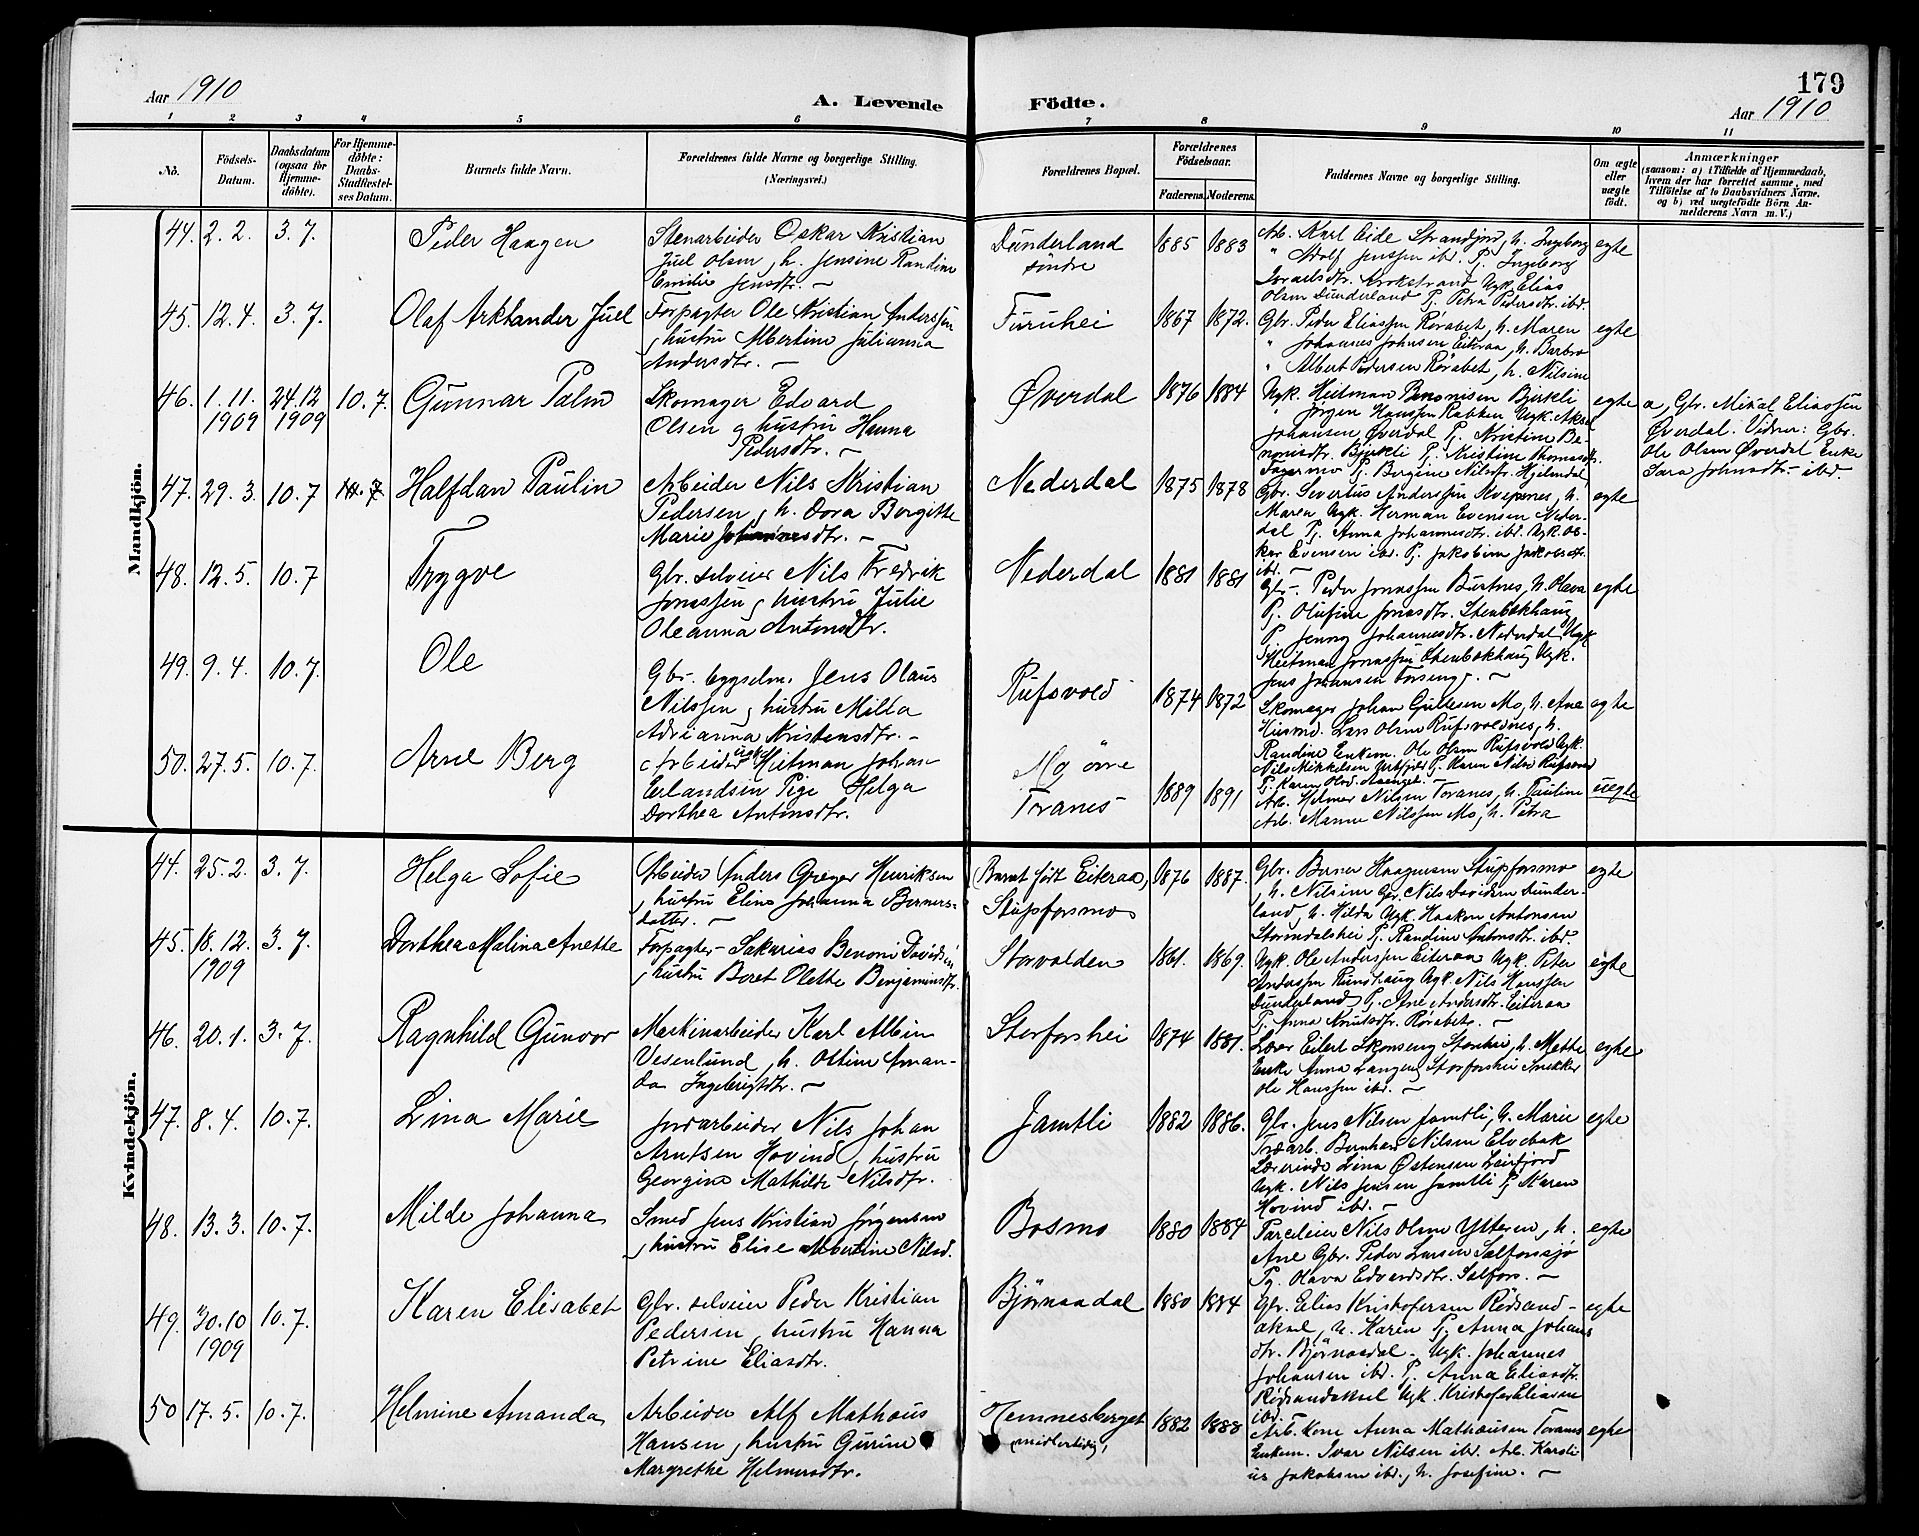 179
Aar 1910
A. Levende Födte.
Aar 1910
1 2 3 4 5 6 7 8 9 10 11
No.
Födsels-
Datum.
Daabsdatum
(ogsaa for
Hjemme-
døbte).
For Hjemme-
døbte:
Daabs-
Stadfæstel-
ses Datum.
Barnets fulde Navn.
Forældrenes fulde Navne og borgerlige Stilling.
(Næringsvei.)
Forældrenes Bopæl.
Forældrenes
Födselsaar.
Faderens. Moderens.
Faddernes Navne og borgerlige Stilling.
Om ægte
eller
uægte
født.
Anmærkninger
(saasom: a) i Tilfælde af Hjemmedaab,
hvem der har forrettet samme, med
Tilföielse af to Daabsvidners Navne.
og b) ved uægtefödte Börn An-
melderens Navn m. V.)
Mandkjön.
44. 2. 2. 3. 7. Peder Haagen
Stenarbeider Oskar Kristian
Juel Olsen, h. Jensine Randine
Emilie Jensdtr. –
Dunderland
søndre
1885 1883
Arb. Karl Eide Strandjord, h. Ingeborg
" Adolf Jenssen ibd. Pj. Ingeborg
Israelsdtr. Krokstrand Ugk. Elias
Olsen Dunderland Pj. Petra Pedersdtr. ibd.
egte
45. 12. 4. 3. 7. Olaf Arktander Juel
Forpagter Ole Kristian Anderssen
, hustru Albertine Julianna
Andersdtr. –
Furuhei
1867 1872.
Gbr. Peder Eliassen Rørabet, h. Maren
" Johannes Johnsen Eiteraa, h. Barbro
" Albert Pedersen Rørabet, h. Nilsine
egte
46. 1. 11. 1909 24.12 1909 10. 7. Gunnar Palm
Skomager Edvard
Olsen og hustru Hanna
Pedersdtr. –
Øverdal
1876 1884
Ugk. Heitman Benonisen Bjerkli
" Jørgen Hanssen Rabben Ugk. Aksel
Johansen Øverdal Pj. Kristine Be-
nonisdtr. Bjerkli Pj. Kristine Thomasdtr.
Tager mo Pj. Bergine Nilsdtr. Hjelmdal
egte
a, Gbr. Mikal Eliassen
Øverdal. Vidner: Gbr.
Ole Olsen Øverdal Enke
Sara Johnsdtr. – ibd.
47. 29. 3. 10. 7 10. 7 Halfdan Paulin
Arbeider Nils Kristian
Pedersen, h. Dora Bergitte
Marie Johannesdtr. –
Nederdal
1875 1878
Gbr. Severtus Anderssen Kvepsnes, h.
Maren Ugk. Herman Evensen Neder-
dal Pj. Anna Johannesdtr. ibd. Ugk. Os-
kar Evensen ibd. Pj. Jakobine Jakobsdtr.
ibd. –
egte
48. 12. 5. 10. 7 Trygve
Gbr. selveier Nils Fredrik
Jonassen, hustru Julie
Oleanna Antonsdtr.
Nederdal
1881 1881
Gbr. – Peder Jonassen Burtnes, h. Olava
Pj. Olufine Jonasdtr. Stenbækhaug
P. Jenny Johannesdtr. Nederdal Ugk
Heitman Jonassen Stenbækhaug Ugk.
Jens Johansen Forseng. –
egte
49. 9. 4. 10. 7. Ole
Gbr. bygselm. Jens Olaus
Nilssen, hustru Milla
Adrianna Kristensdtr. –
Rufsvold
1874 1872
Skomager Johan Gullesen Mo, h. Ane
Husmd. Lars Olsen Rufsvoldnes, h.
Randine Enkem. Ole Olsen Rufsvold Ugk.
Nils Mikkelsen Urtfjeld Pj. Karen Nilsd. Rufsvold
Pj. Karen Olsd. Avenget. –
egte
50. 27. 5. 10. 7. Arne Berg
Arbeider ugk. Heitman Johan
Erlandsen Pige Helga
Dorthea Antonsdtr.
Mo øvre
Toranes –
1889 1891
Arb. Helmer Nilsen Toranes, h. Pauline
Arb. Manne Nilssen Mo, h. Petra
uegte
Kvindekjön.
44. 25. 2. 3. 7. Helga Sofie
Arbeider Anders Greger Henriksen
, hustru Elise Johanna Berners-
datter. –
(Barnet født Eiteraa,)
Stupforsmo
1876 1887.
Gbr. Berner Haagensen Stupforsmo
, h. Nilsine Gbr. Nils Davidsen Dunder-
land, h. Hilda Ugk. Haaken Antonsen
Stormdalshei Pj. Randine Antonsdtr. ibd.
egte
45. 18. 12. 1909 3. 7. Dorthea Malina Anette
Forpagter – Sakarias Benoni Davidsen
, hustru Beret Olette Benjaminsdtr.
Storvolden
1861. 1869.
Ugk. Ole Anderssen Eiteraa Ugk. Peter
Anderssen Rundhaug Ugk. Nils Hanssen
Dunderland Pj. Ane Andersdtr. Eiteraa
Pj. Anna Knutsdtr. Rørabet. –
egte
46. 20. 1. 3. 7. Ragnhild Gunvor
Maskinarbeider Karl Albin
Vesenlund, h. Ottine Aman-
da Ingebrigtsdtr. –
Storforshei
1874 1881.
Lærer Eilert Skonseng Storshei, h. Mette
Enke Anna Langeng Storforshei Snekker
Ole Hanssen ibd. –
egte
47. 8. 4. 10. 7. Lina Marie
Jordarbeider Nils Johan
Arntsen Hovind, hustru
Georgine Mathilde Nilsdtr.
Jamtli
1882 1886.
Gbr. Jens Nilsen Jamtli, h. Marie
Træarb. Bernhard Nilsen Elvebak
Lærerinde Lina Østensen Leirfjord
Ugk. Nils Jensen Jamtli Pj. Karen
Hovind ibd. –
egte
48. 13. 3. 10. 7. Milde Johanna
Smed Jens Kristian Jørgensen
, hustru Elise Albertine Nilsd.
Bosmo
1880 1884
Parceleier Nils Olsen Ytteren, h.
Ane Gbr. Peder Larsen Salforssjø
Pg. Olava Edvardsdtr. Salfors. –
egte
49. 30. 10 1909 10. 7. Karen Elisabet
Gbr. selveier Peder Kristian
Pedersen, hustru Hanna
Petrine Eliasdtr.
Bjørnaadal
1880 1884
Gbr. Elias Kristofersen Rødsand-
aksel, h. Karen Pj. Anna Johans
dtr. Bjørnaadal – Ugk. Johannes
Johansen ibd. Pj. Anna Eliasdtr.
Rødsandaksel Ugk. Kristofer Eliassen
ibd.
egte
50 17. 5. 10. 7. Helmine Amanda
Arbeider Alf Mathæus
Hansen, hustru Gurine
Margrethe Helmersdtr.
Hemnesberget
midlertidig,
1882 1888
Arb. Kone Anna Mathæusen Toranes
Enkem. Ivar Nilsen ibd. Arb. Karoli-
us Jakobsen ibd., h. Josefine. –
egte